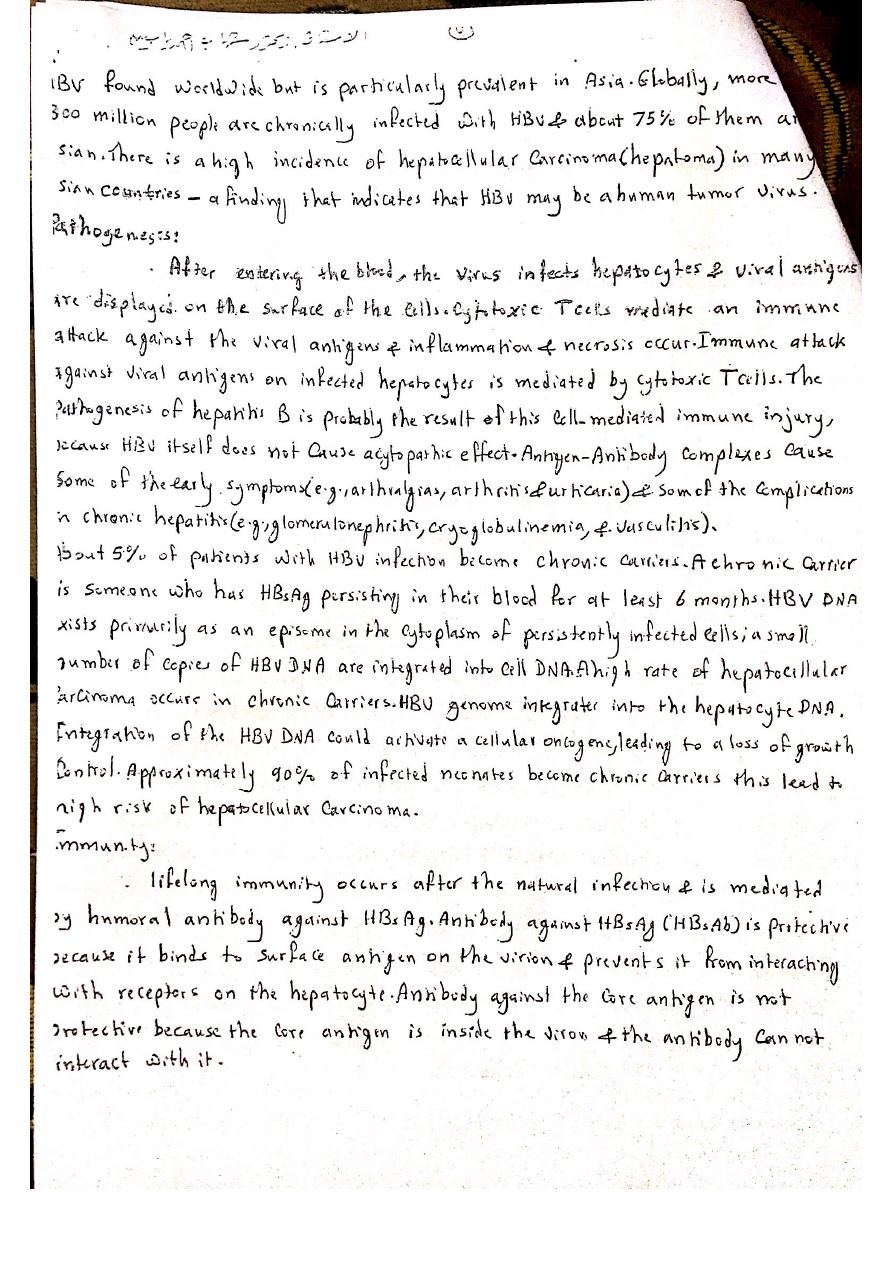 الاستاذ الدكتور شهاب احمد
IBV found worldwide but is particularly prevalent in Asia. Globally, more
300 million people are chronically infected with HBV & about 75% of them ar
sian. There is a high incidence of hepatocellular Carcinoma (hepatoma) in many
sian countries - a finding that indicates that HBV may be a human tumor virus.
Pathogenesis:
. After entering the blood, the virus infects hepatocytes & viral antigens
are displayed on the surface of the cells. Cytotoxic T cells mediate an immune
attack against the viral antigens & inflammation & necrosis occur. Immune attack
against viral antigens on infected hepatocytes is mediated by cytotoxic T cells. The
Pathogenesis of hepatitis B is probably the result of this cell-mediated immune injury,
because HBV itself does not Cause a cytopathic effect. Antigen-Antibody complexes cause
some of the early symptoms (e.g., arthralgias, arthritis & urticaria) & som of the Complications
in chronic hepatitis (e.g., glomerulonephritis, cryoglobulinemia, & vasculitis).
About 5% of patients with HBV infection become chronic carriers. A chronic Carrier
is someone who has HBsAg persisting in their blood for at least 6 months. HBV DNA
xists primurily as an episome in the cytoplasm of persistently infected cells; a small
number of copies of HBV DNA are integrated into cell DNA. A high rate of hepatocellular
arcinoma occurs in chronic Carriers. HBV genome integrates into the hepatocyte DNA.
Integration of the HBV DNA could activate a cellular oncogene, leading to a loss of growth
Control. Approximately 90% of infected neonates become chronic carriers this lead to
high risk of hepatocellular Carcinoma.
Immunity:
. lifelong immunity occurs after the natural infection & is mediated
by humoral antibody against HBsAg. Antibody against HBsAg (HBsAb) is protective
because it binds to surface antigen on the virion & prevents it from interaching
with receptors on the hepatocyte. Antibody against the Core antigen is not
protective because the Core antigen is inside the viron & the antibody Can not
interact with it.